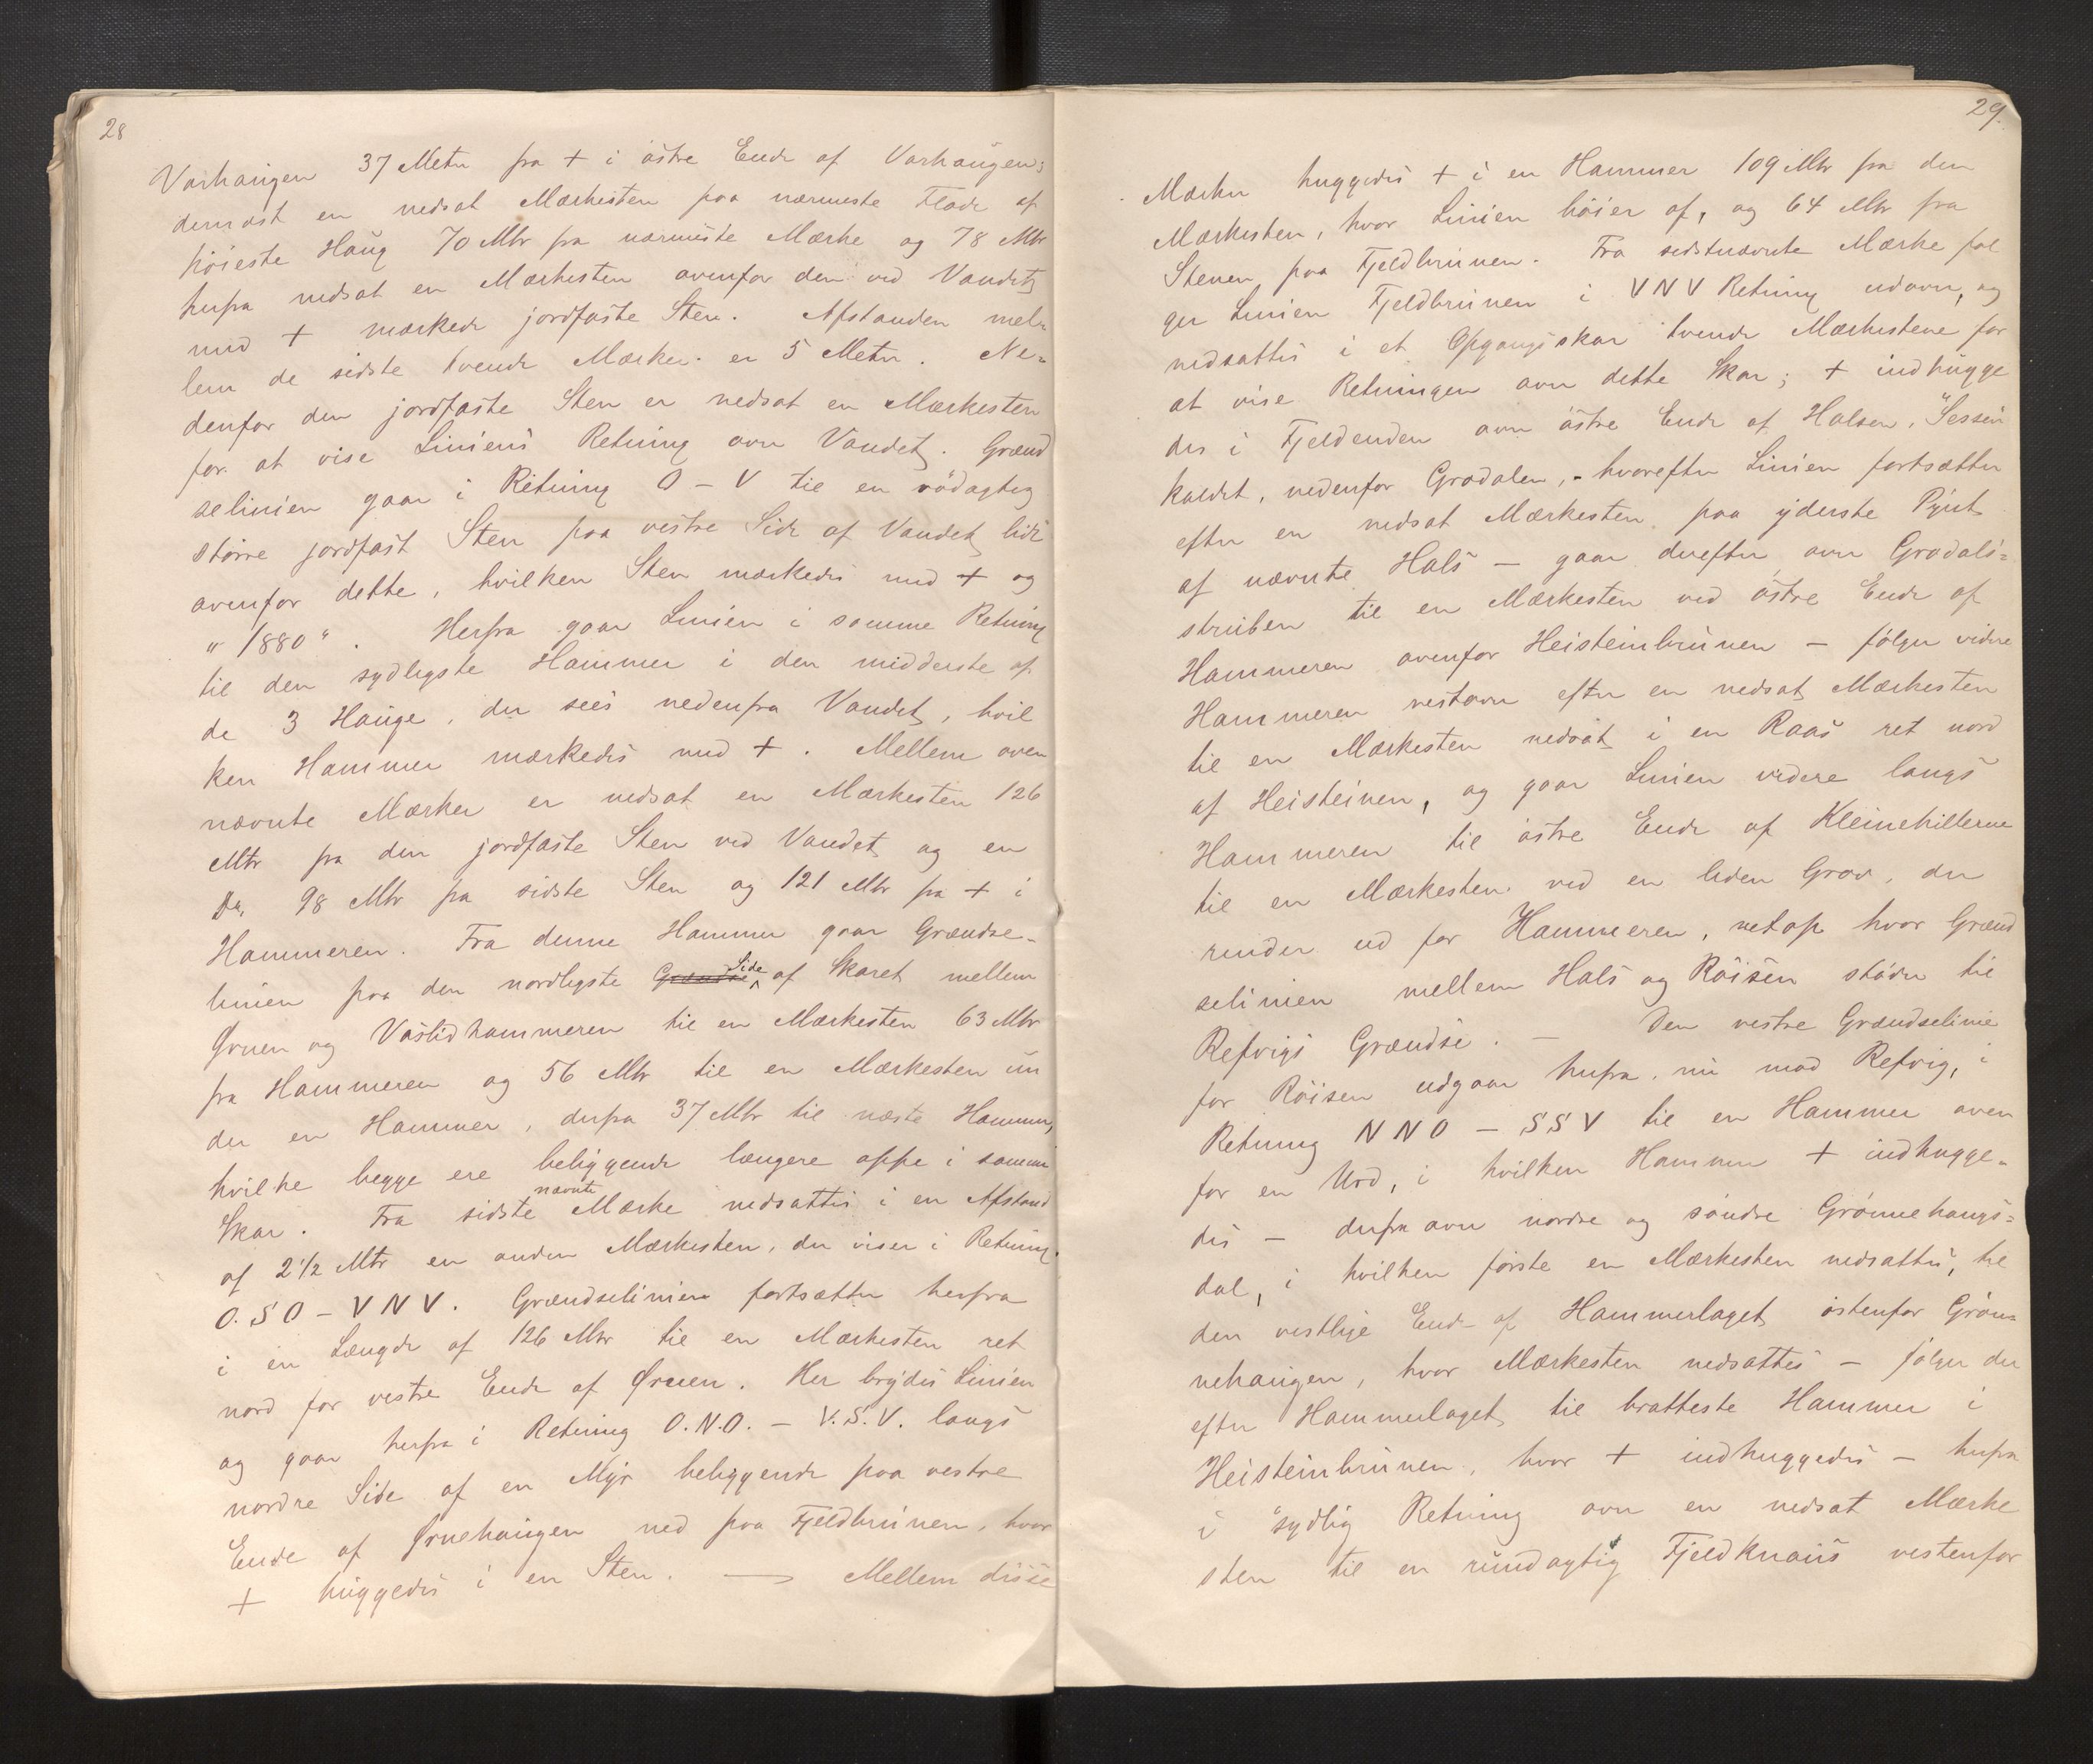 28
Varhaugen 37 Meter fra + i østre Ende af Varhaugen;
dernæst en nedsat Mærkesten paa nærmeste Flade af
höieste Haug 70 Mtr fra nærmeste Mærke og 78 Mtr
herfra nedsat en Mærkesten ovenfor den ved Vandet
med + mærkede jordfaste Sten. Afstanden mel-
lem de sidste tvende Mærker er 5 Meter. Ne-
denfor den jordfaste Sten er nedsat en Mærkesten
for at vise Liniens Retning over Vandet. Grænd
selinien gaar i Retning O - V til en rödagtig
större jordfast Sten paa vestre Side af Vandet lidt
ovenfor dette, hvilken Sten mærkedes med + og
"1880". Herfra gaar Linien i samme Retning
til den sydligste Hammer i den midderste af
de 3 Hauge, der sees nedenfra Vandet, hvil
ken Hammer mærkedes med +. Mellem oven
nævnte Mærker er nedsat en Mærkesten 126
Mtr fra den jordfaste Sten ved Vandet og en
Do. 98 Mtr fra sidste Sten og 121 Mtr fra + i
Hammeren. Fra denne Hammer gaar Grændse-
linien paa den nordligste Grændse Side af Skaret mellem
Ørnen og Vaslidhammeren til en Mærkesten 63 Mtr
fra Hammeren og 56 Mtr til en Mærkesten un
der en Hammer, derfra 37 Mtr til næste Hammer,
hvilke begge ere beliggende længere oppe i samme
Skar. Fra sidste nævnte Mærke nedsattes i en Afstand
af 2 1/2 Mtr en anden Mærkesten, der viser i Retning
O.SO - VNV. Grændselinien fortsætter herfra
i en Længde af 126 Mtr til en Mærkesten ret
nord for vestre Ende af Ørnen. Her brydes Linien
og gaar herfra i Retning O.N.O. - V.S.V. langs
nordre Side af en Myr beliggende paa vestre
Ende af Ørnehaugen ned paa Fjeldbrunen, hvor
+ huggedes i en Sten. — Mellem disse
29.
Mærker huggedes + i en Hammer 109 Mtr fra den
Mærkesten, hvor Linien böier af, og 64 Mtr fra
Stenen paa Fjeldbrunen. Fra sidstnævnte Mærke föl
ger Linien Fjeldbrunen i VNV Retning udover, og
nedsattes i et Opgangsskar tvende Mærkestene for
at vise Retningen over dette Skar; + indhugge
des i Fjeldenden over östre Ende af Halsen, "Sessen
kaldet, nedenfor Grødalen, - hvorefter Linien fortsætter
efter en nedsat Mærkesten paa yderste Pynt
af nævnte Hals — gaar derefter over Grødals-
struben til en Mærkesten ved östre Ende af
Hammeren ovenfor Heisteinbrunen — fölger videre
Hammeren vestover efter en nedsat Mærkesten
til en Mærkesten nedsat i en Raas ret nord
af Heisteinen, og gaar Linien videre langs
Hammeren til östre Ende af Kleinehillerne
til en Mærkesten ved en liden Grov, der
rinder ud for Hammeren, netop hvor Grænd
selinien mellem Hals og Röisen støder til
Refvigs Grændse. — Den vestre Grændselinie
for Röisen udgaar herfra nu mod Refvig, i
Retning NNO - SSV til en Hammer oven
for en Urd, i hvilken Hammer + indhugge-
des — derfra over nordre og söndre Grønehaugs-
dal, i hvilken første en Mærkesten nedsattes, til
den vestlige Ende af Hammerlaget östenfor Grøn-
nehaugen, hvor Mærkesten nedsattes — fölger der
efter Hammerlaget til bratteste Hammer i
Heisteinbrunen, hvor + indhuggedes — herfra
i sydlig Retning over en nedsat Mærke
sten til en rundagtig Fjeldknaus vestenfor